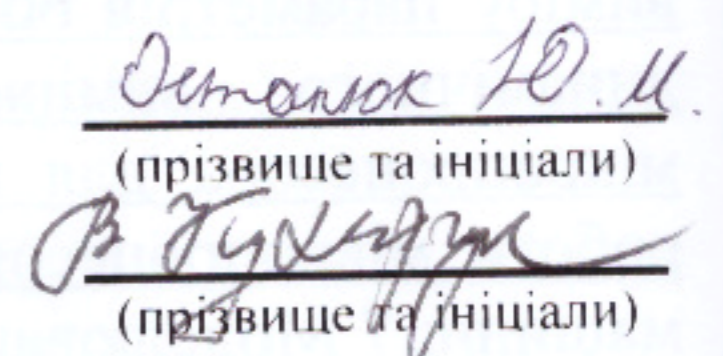 Остапюк Ю. М.
(прізвище та ініціали)
В
(прізвище та ініціали)